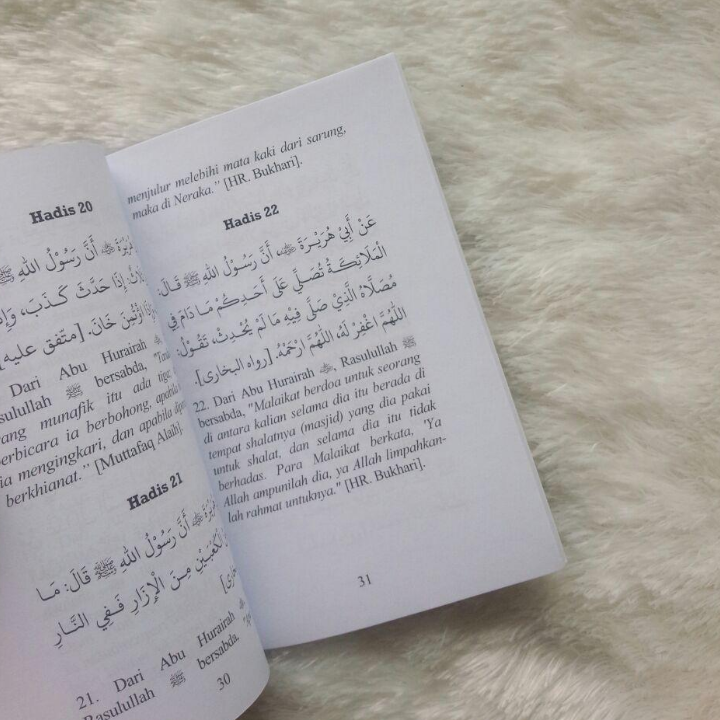 Hadis 20
أَنَّ رَسُوْلُ اللهِ ﷺ
إِذَا حَدَّثَ كَـذَبَ، وَإِذَا
اؤْتُمِنَ خَانَ. [متّفق عليه]
Dari Abu Hurairah
bersabda,
munafik itu ada tiga
berbicara ia berbohong, apabila
ia mengingkari, dan apabila
berkhianat." [Muttafaq Alaih].
Hadis 21
أَنَّ رَسُوْلُ اللهِ ﷺ قَالَ: مَـا
الْكَعْبَيْنِ مِـنَ الْإِزَارِ فَـفِي النَّـارِ
21. Dari Abu Hurairah
Rasulullah ﷺ bersabda,
30
menjulur melebihi mata kaki dari sarung,
maka di Neraka." [HR. Bukhari].
Hadis 22
عَنْ أَبِيْ هُرَيْـرَةَ ﷺ، أَنَّ رَسُـوْلُ اللهِ ﷺ قَـالَ:
الْمَلَائِكَـةُ تُصَـلِّي عَلَى أَحَـدِكُمْ مَـا دَامَ فِي
مُصَلَّاهُ الَّذِيْ صَلَّى فِيْهِ مَا لَمْ يُحْدِثْ، تَقُوْلُ:
اللّٰهُمَّ اغْفِرْ لَهُ، اللّٰهُمَّ ارْحَمْهُ. [رواه البخاري].
22. Dari Abu Hurairah, Rasulullah ﷺ
bersabda, "Malaikat berdoa untuk seorang
di antara kalian selama dia itu berada di
tempat shalatnya (masjid) yang dia pakai
untuk shalat, dan selama dia itu tidak
berhadas. Para Malaikat berkata, "Ya
Allah ampunilah dia, ya Allah limpahkan-
lah rahmat untuknya." [HR. Bukhari].
31